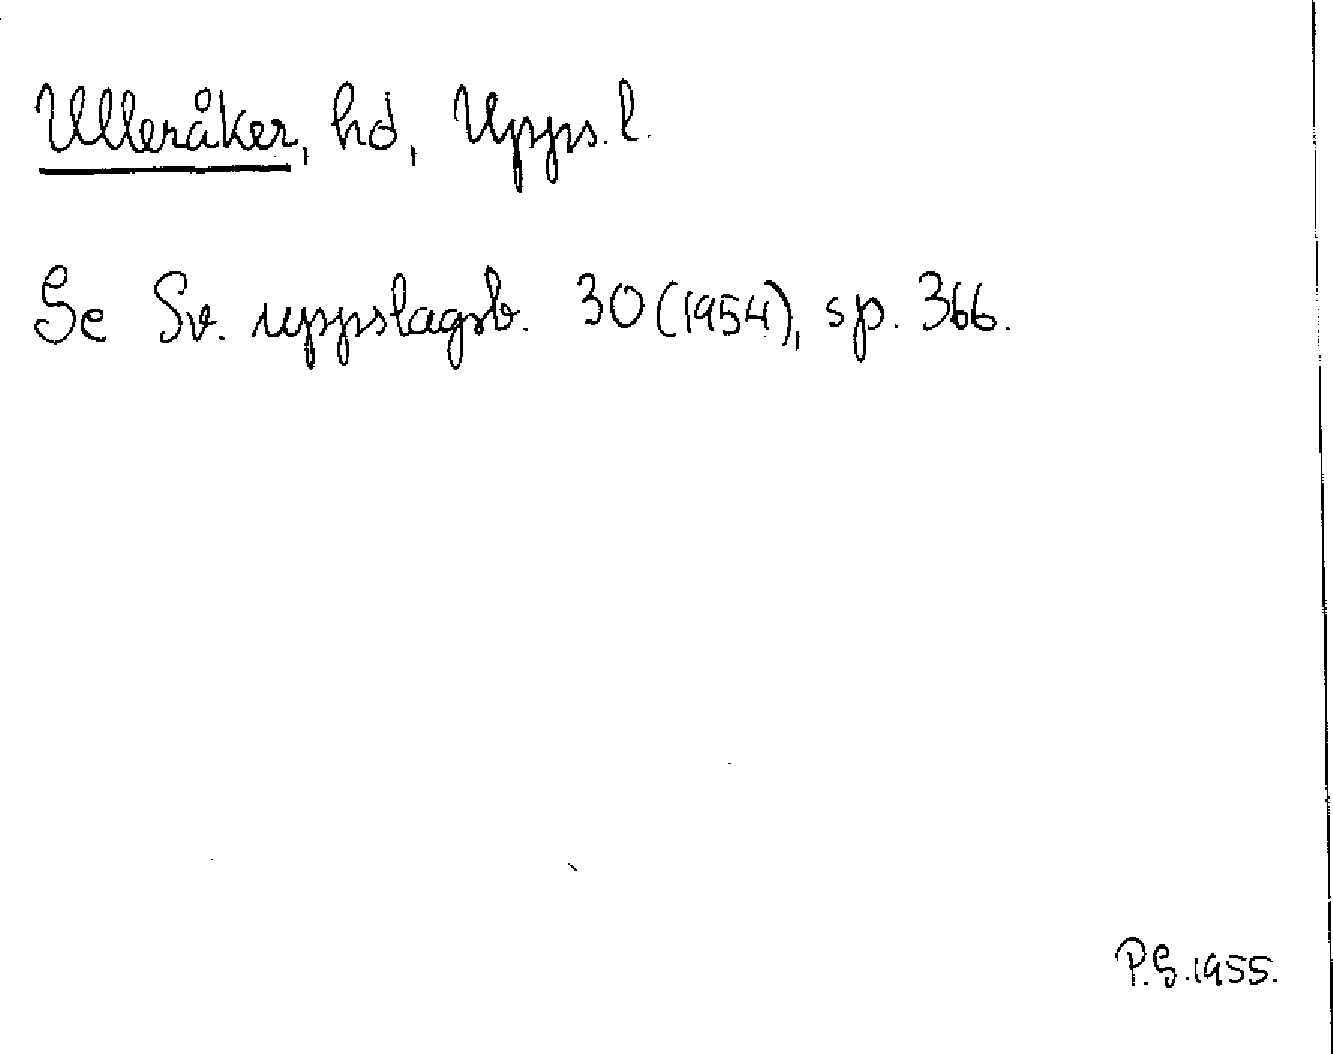 Ulleråker, hd, Upps. l.
Se Sv. uppslagsb. 30 (1954), sp. 366.
P.S. 1955.